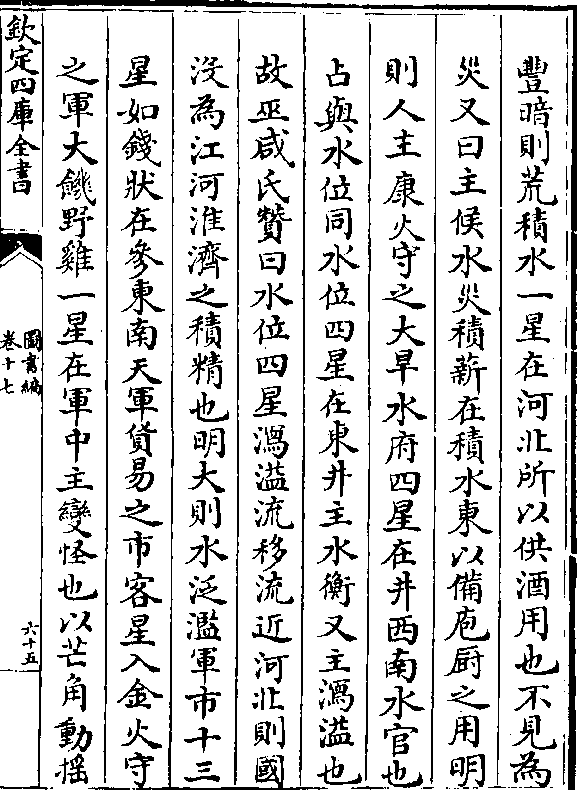 豐暗則荒積水一星在河北所以供酒用也不見為
災又曰主候水災積薪在積水東以備庖厨之用明
則人主康火守之大旱水府四星在井西南水官也
占與水位同水位四星在東井主水衡又主瀉溢也
故巫咸氏贊曰水位四星瀉溢流移流近河北則國
沒為江河淮濟之積精也明大則水泛濫軍市十三
星如錢狀在參東南天軍貨易之市客星入金火守
之軍大饑野雞一星在軍中主變怪也以芒角動揺
欽定四庫全書
圖書編
卷十七
六十五